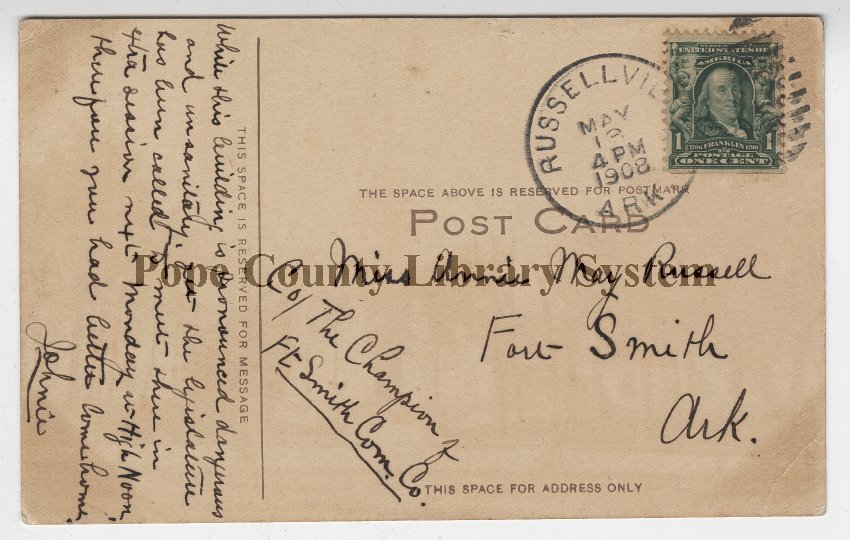 While this building is pronounced dangerous
and unsanitary, yet the legislature
has been called to meet there in
Xtra session next Monday, at High Noon
therefore you had better come home.
Johnie
THIS SPACE IS RESERVED FOR MESSAGE
RUSSELLVIL
MAY
4 PM
1908
ARK
SERIES 1902
UNITED STATES OF
AMERICA
1 1
1706 FRANKLIN 1790
POSTAGE
ONE CENT
THE SPACE ABOVE IS RESERVED FOR POSTMARK
POST CARD
Pope County Library System
Miss Annie May Russell
Fort Smith
Ark.
C/o The Champion &
Ft Smith Com. Co.
THIS SPACE FOR ADDRESS ONLY